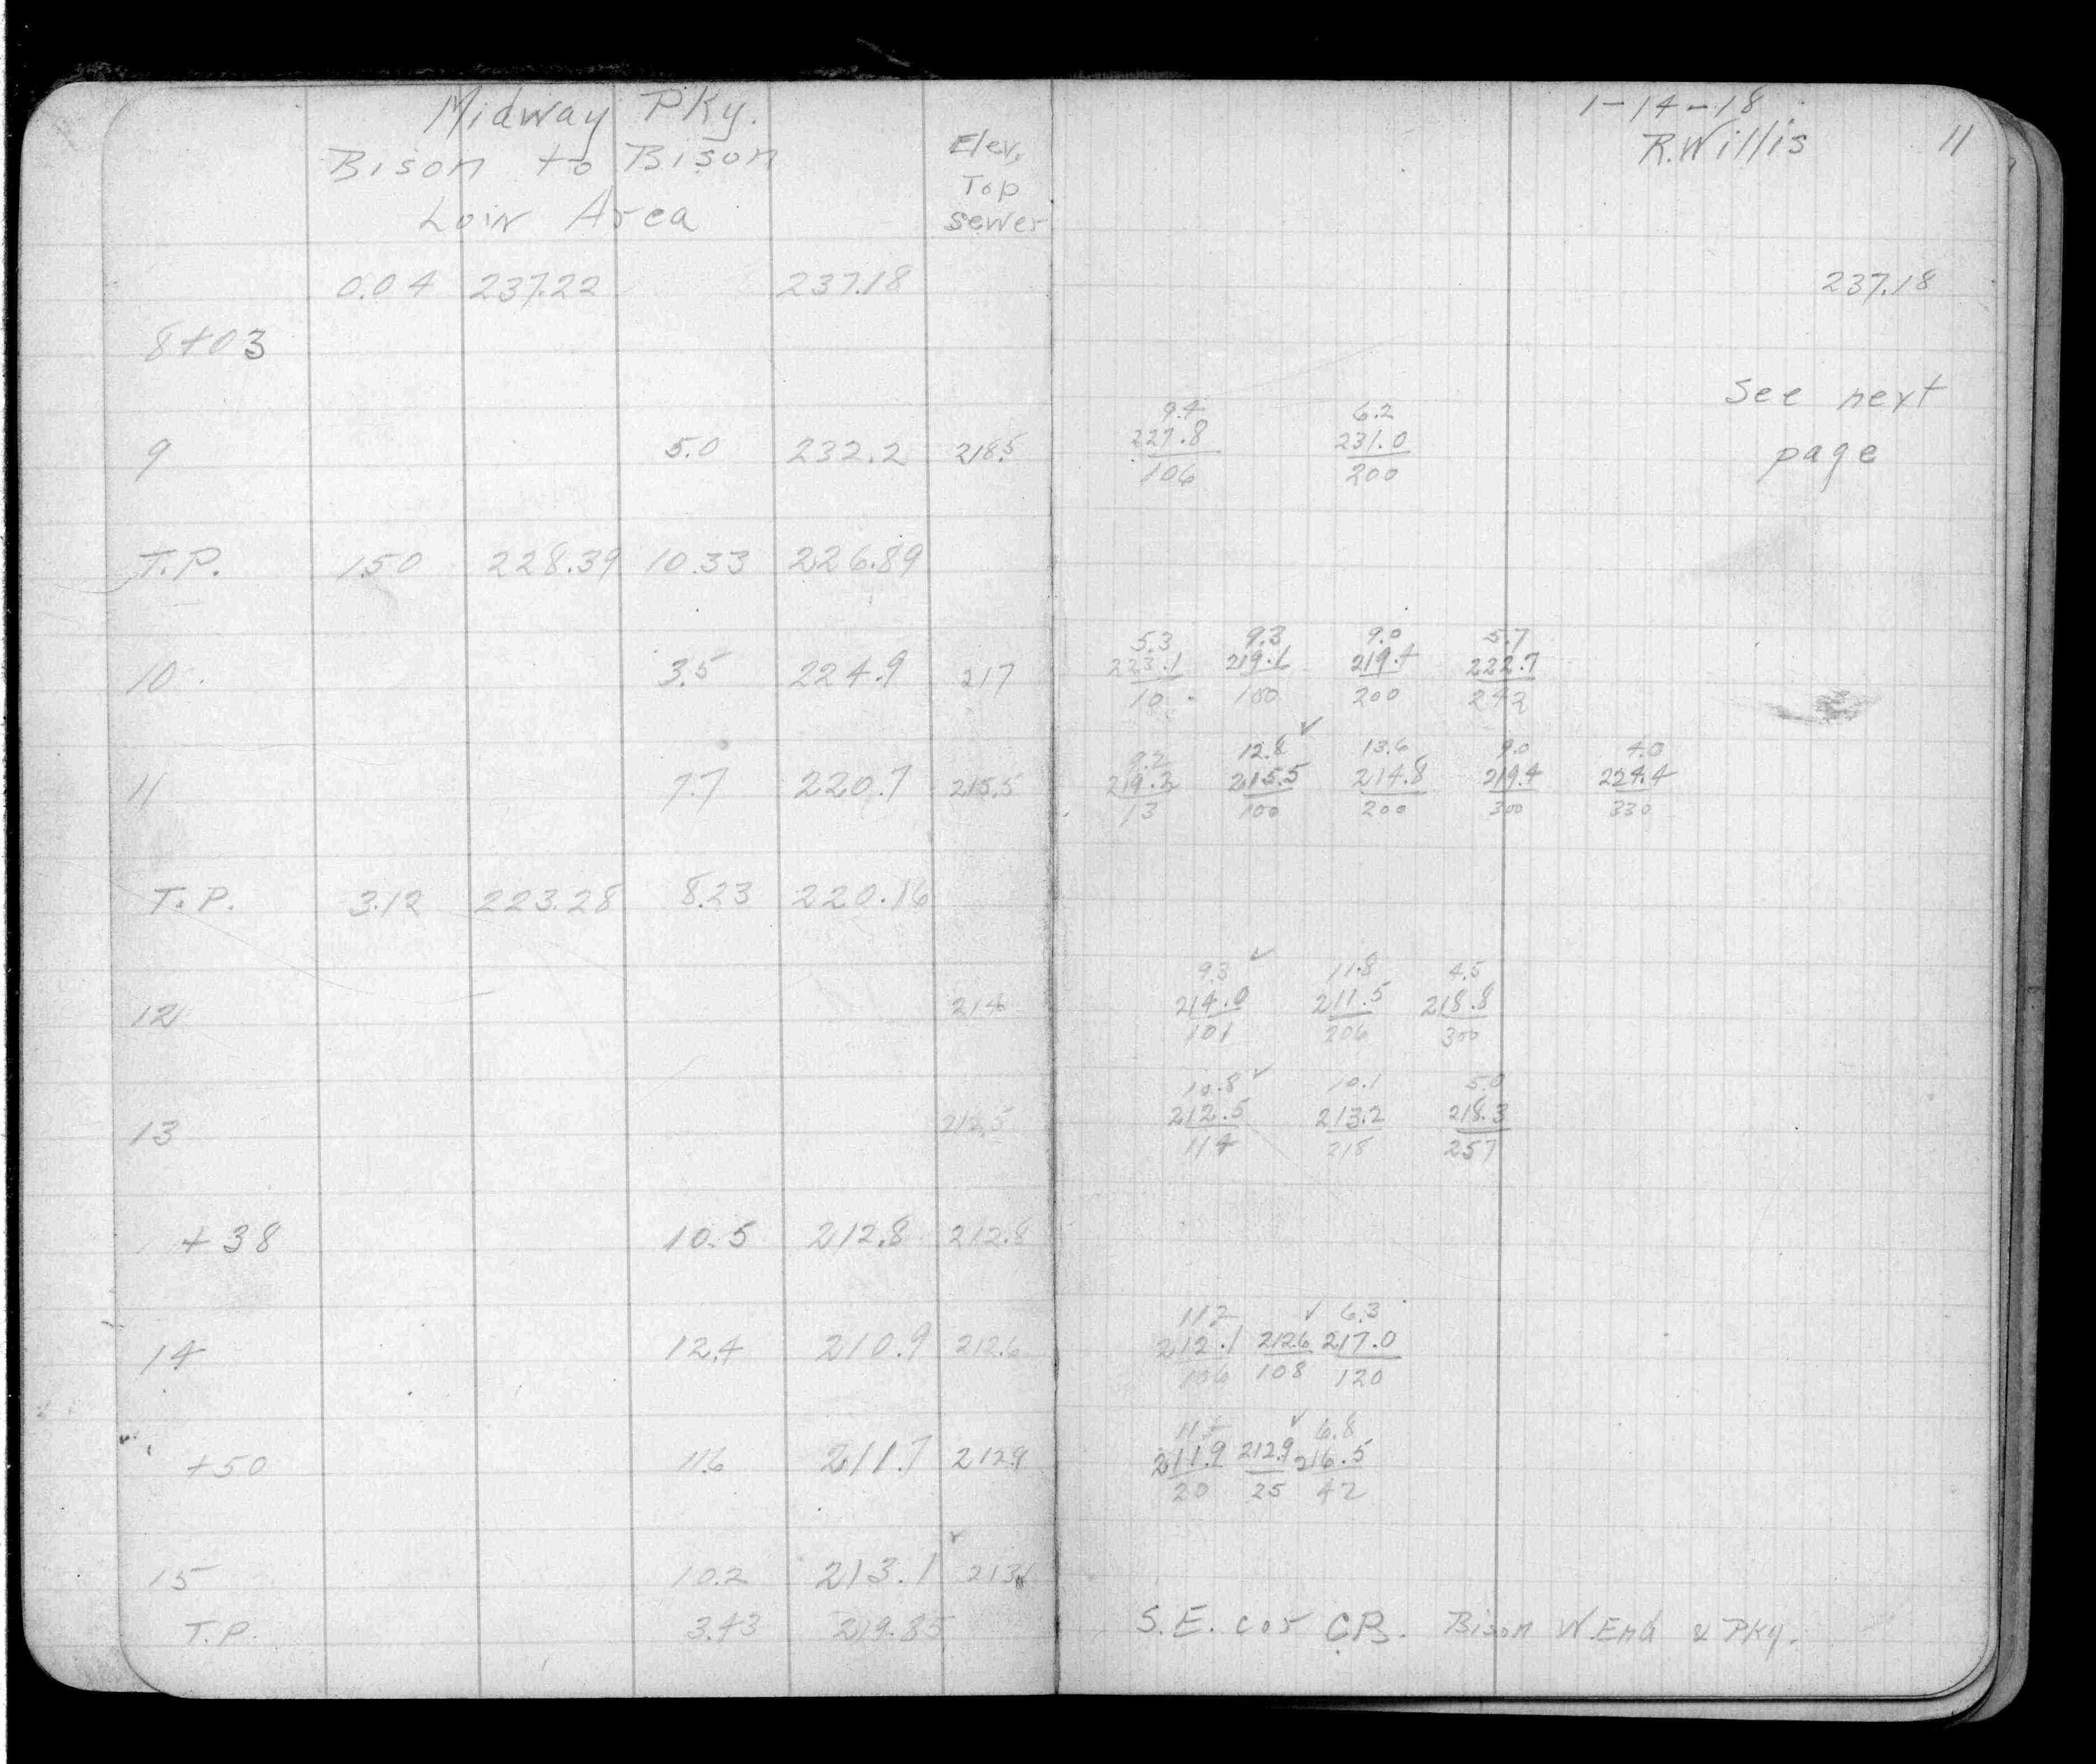 Midway Pky.
Bison to Bison
Low Area
Elev. Top Sewer
0.04 237.22 237.18
8+03
9 5.0 232.2 218.5
T.P. 1.50 228.39 10.33 226.89
10 3.5 224.9 217
11 7.7 220.7 215.5
T.P. 3.12 223.28 8.23 220.16
12 214
13 212.5
+38 10.5 212.8 212.8
14 12.4 210.9 212.6
+50 11.6 211.7 212.9
15 10.2 213.1 ✓
T.P. 3.43 219.85
1-14-18
R. Willis 11
237.18
See next
page
9.4 6.2
227.8 231.0
106 200
5.3 9.3 9.0 5.7
223.1 219.1 219.4 222.7
10 100 200 242
9.2 12.8 ✓ 13.6 9.0 4.0
219.2 215.5 214.8 219.4 224.4
13 100 200 300 330
9.3 ✓ 11.8 4.5
214.0 211.5 218.8
101 206 300
10.8 ✓ 10.1 5.0
212.5 213.2 218.3
114 218 257
11.2 ✓ 6.3
212.1 212.6 217.0
106 108 120
11.4 ✓ 6.8
211.9 212.9 216.5
20 25 42
S.E. cor C.B. Bison W. End & Pky.